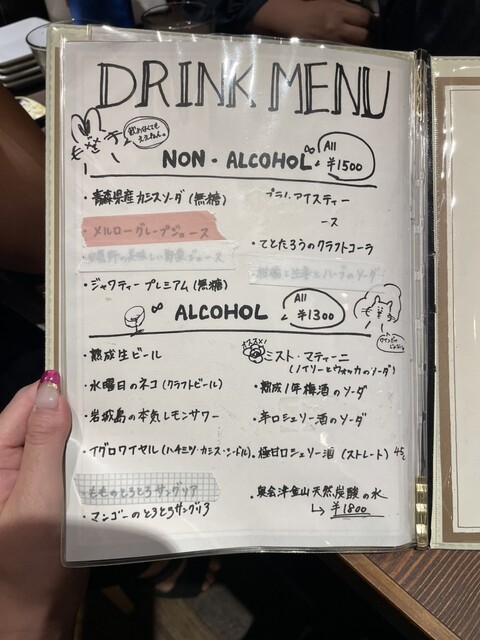 DRINK MENU
NON・ALCOHOL All ¥1500
・青森県産カシスソーダ（無糖）
・メルローグレープジュース
・ジャワティープレミアム（無糖）
アイスティー
ース
・てとたろうのクラフトコーラ
ALCOHOL All ¥1300
・熟成生ビール
・水曜日のネコ（クラフトビール）
・岩城島の本気レモンサワー
・イグロワイヤル（ハチミツ・カシス・シードル）
・もものとろとろサングリア
・マンゴーのとろとろサングリア
オススメ！
ミスト・マティーニ
（ノイリーとウォッカのソーダ）
・熟成1年梅酒のソーダ
・辛口シェリー酒のソーダ
・極甘口シェリー酒（ストレート）45
・奥会津金山天然炭酸の水
↳ ¥1800